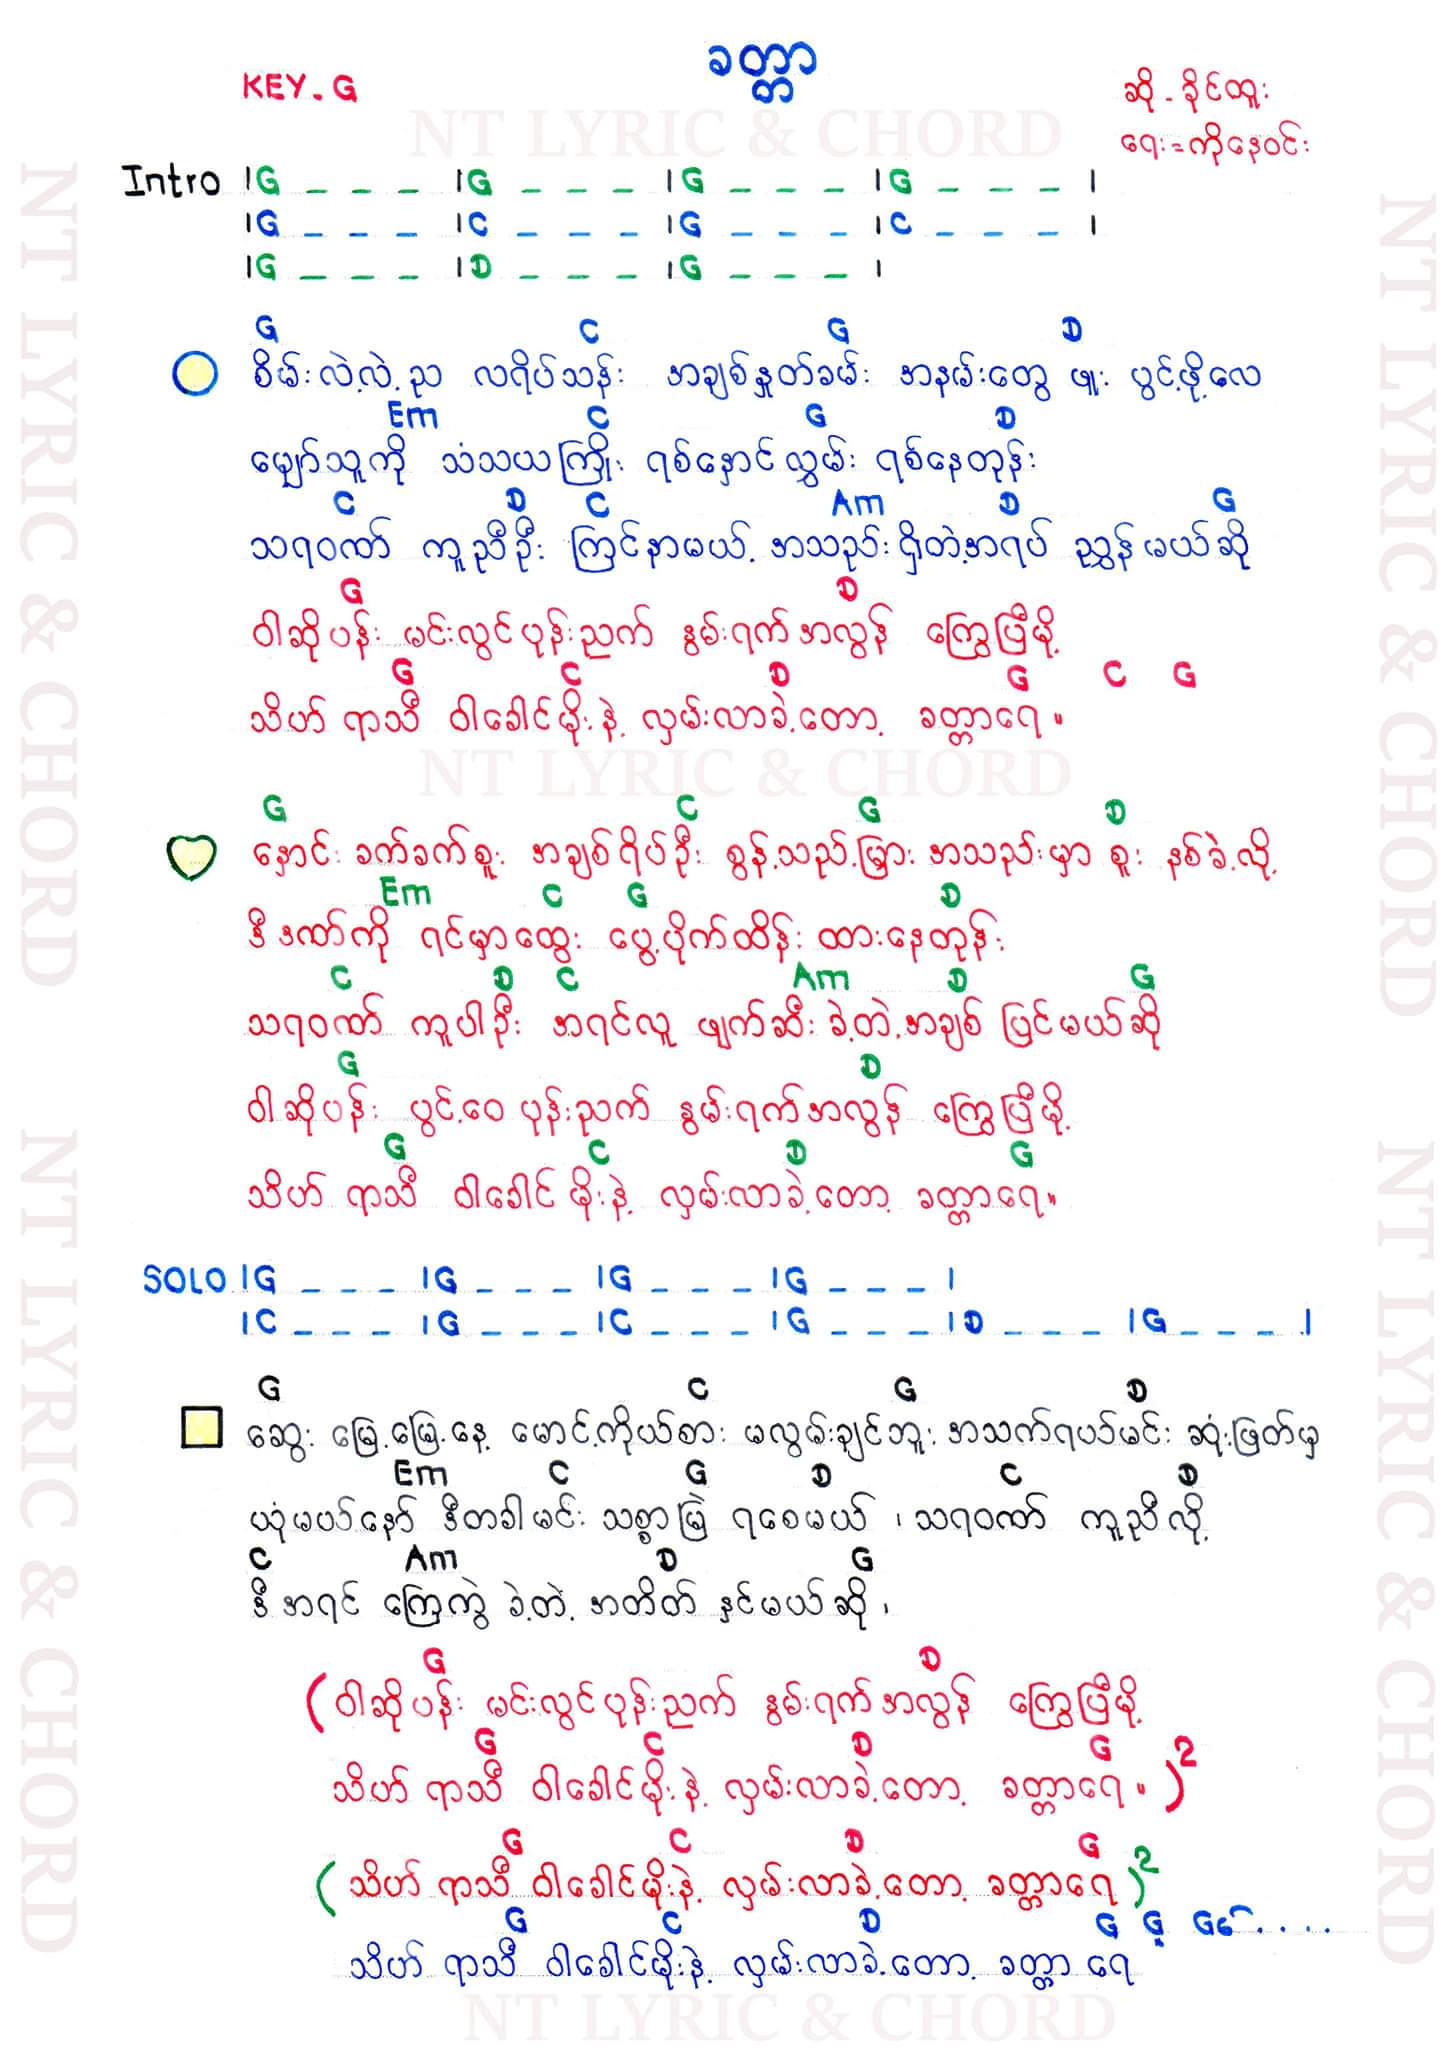 ခတ္တာ
KEY.G
ဆို - ခိုင်ထူး
ရေး = ကိုနေဝင်း
NT LYRIC & CHORD
Intro |G _ _ _ |G _ _ _ |G _ _ _ |G _ _ _ |
|G _ _ _ |C _ _ _ |G _ _ _ |C _ _ _ |
|G _ _ _ |D _ _ _ |G _ _ _ |
G C G D
စိမ်းလဲ့လဲ့ည လရိပ်သန်း အချစ်နှုတ်ခမ်း အနမ်းတွေ ဖူး ပွင့်ဖို့လေ
Em C G D
မျှော်သူကို သံသယကြိုး ရစ်နှောင်လွှမ်း ရစ်နေတုန်း
C D C Am D G
သရဝဏ် ကူညီဦး ကြင်နာမယ့် အသည်းရှိတဲ့အရပ် ညွှန်မယ်ဆို
G D
ဝါဆိုပန်း မင်းလွင်ပုန်းညက် နွမ်းရက်အလွန် ကြွေပြီမို့
G C D G C G
သိဟ် ရာသီ ဝါခေါင်မိုးနဲ့ လှမ်းလာခဲ့တော့ ခတ္တာရေ။
NT LYRIC & CHORD
G C G D
နှောင်း ခက်ခက်စူး အချစ်ရိပ်ဦး စွန့်သည့်မြှား အသည်းမှာ စူး နစ်ခဲ့လို့
Em C G D
ဒီဒဏ်ကို ရင်မှာထွေး ပွေ့ပိုက်ထိန်း ထားနေတုန်း
C D C Am D G
သရဝဏ် ကူပါဦး အရင်လူ ဖျက်ဆီးခဲ့တဲ့အချစ် ပြင်မယ်ဆို
G D
ဝါဆိုပန်း ပွင့်ဝေ ပုန်းညက် နွမ်းရက်အလွန် ကြွေပြီမို့
G C D G
သိဟ် ရာသီ ဝါခေါင် မိုးနဲ့ လှမ်းလာခဲ့တော့ ခတ္တာရေ။
SOLO |G _ _ _ |G _ _ _ |G _ _ _ |G _ _ _ |
|C _ _ _ |G _ _ _ |C _ _ _ |G _ _ _ |D _ _ _ |G _ _ _ |
G C G D
ဆွေး မြေ့မြေ့နေ့ မောင့်ကိုယ်စား မလွမ်းချင်ဘူး အသက်ရယ်မင်း ဆုံးဖြတ်မှ
Em C G D C D
ယုံမယ်နော် ဒီတခါမင်း သစ္စာမြဲ ရစေမယ် ၊ သရဝဏ် ကူညီလို့
C Am D G
ဒီအရင် ကြေကွဲ ခဲ့တဲ့ အတိတ် နှင်မယ်ဆို ၊
G D
(ဝါဆိုပန်း မင်းလွင်ပုန်းညက် နွမ်းရက်အလွန် ကြွေပြီမို့
G C D G
သိဟ် ရာသီ ဝါခေါင်မိုးနဲ့ လှမ်းလာခဲ့တော့ ခတ္တာရေ။ )2
G C D G
(သိဟ် ရာသီ ဝါခေါင်မိုးနဲ့ လှမ်းလာခဲ့တော့ ခတ္တာရေ )2
G C D G G G
သိဟ် ရာသီ ဝါခေါင်မိုးနဲ့ လှမ်းလာခဲ့တော့ ခတ္တာ ရေ
NT LYRIC & CHORD
NT LYRIC & CHORD
NT LYRIC & CHORD
NT LYRIC & CHORD
NT LYRIC & CHORD